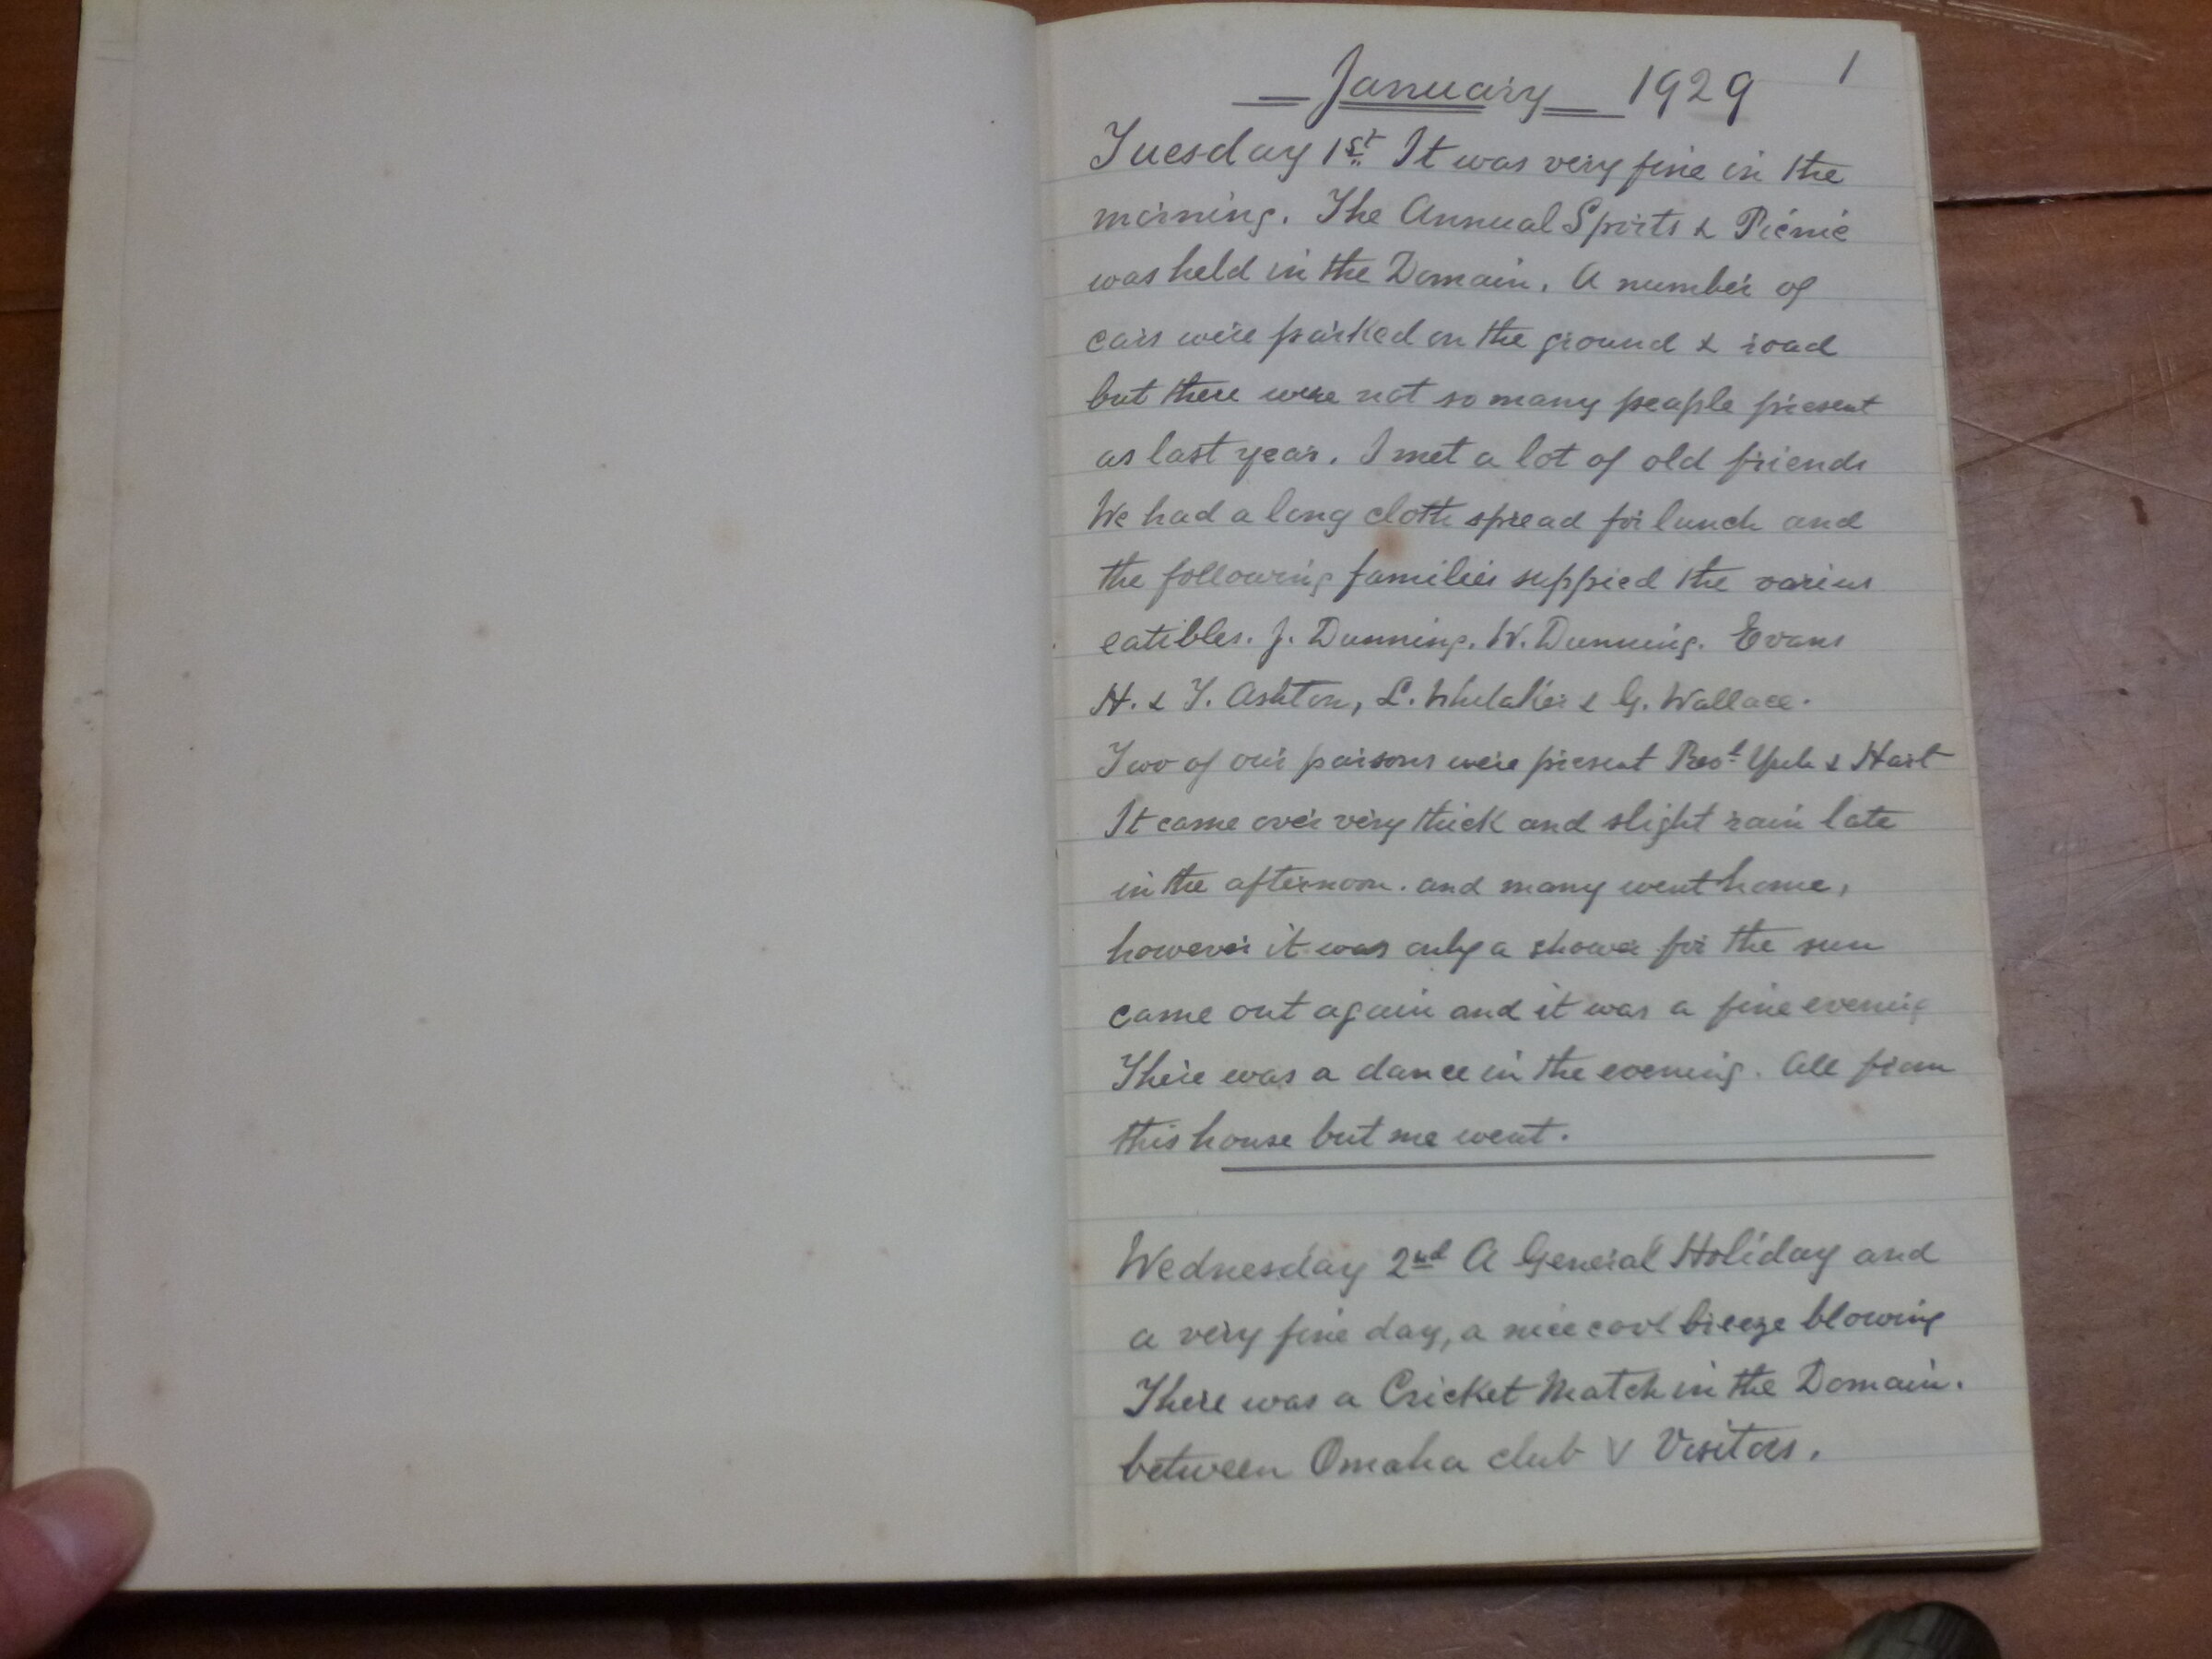 January 1929 1
Tuesday 1st It was very fine in the
morning. The Annual Sports & Picnic
was held in the Domain. A number of
cars were parked on the ground & road
but there were not so many people present
as last year. I met a lot of old friends
We had a long cloth spread for lunch and
the following families suppied the varius
eatibles. J. Dunning. W. Dunning. Evans
H. & T. Ashton, L. & G. Wallace.
Two of our parsons were present & Hart
It came over very thick and slight rain late
in the afternoon. and many went home,
however it was only a shower for the sun
came out again and it was a fine evening
There was a dance in the evening. All from
this house but me went.
Wednesday 2nd A General Holiday and
a very fine day, a nice cool breeze blowing
There was a Cricket Match in the Domain.
between Omaha club V Visitors.